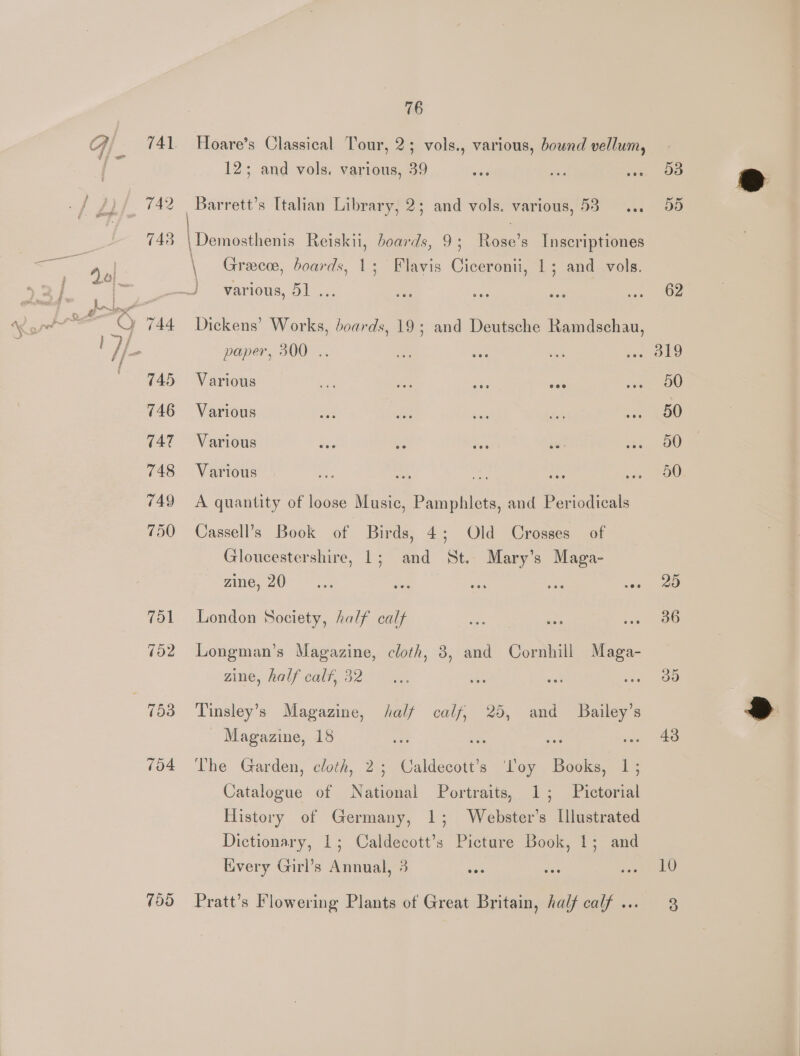 76
741 Hoare's Classical Tour, 2; vols., various, bound vellum,
12; and vols. various, 39 ... ... ... 53
742 Barrett's Italian Library, 2; and vols. various, 53 ... 55
743 Demosthenis Reiskii, boards, 9; Rose's Inscriptiones
Græcœ, boards, 1; Flavis Ciceronii, 1; and vols.
various, 51 ... ... ... ... ... 62
744 Dickens' Works, boards, 19; and Deutsche Ramdschau,
paper, 300 .. ... ... ... ... 319
745 Various ... ... ... ... ... 50
746 Various ... ... ... ... ... 50
747 Various ... ... ... ... ... 50
748 Various ... ... ... ... ... 50
749 A quantity of loose Music, Pamphlets, and Periodicals
750 Cassell's Book of Birds, 4; Old Crosses of
Gloucestershire, 1; and St. Mary's Maga-
zine, 20 ... ... ... ... ... 25
751 London Society, half calf ... ... ... 36
752 Longman's Magazine, cloth, 3, and Cornhill Maga-
zine, half calf, 32 ... ... ... ... 35
753 Tinsley's Magazine, half calf, 25, and Bailey's
Magazine, 18 ... ... ... ... 43
754 The Garden, cloth, 2; Caldecott's Toy Books, 1;
Catalogue of National Portraits, 1; Pictorial
History of Germany, 1; Webster's Illustrated
Dictionary, 1; Caldecott's Picture Book, 1; and
Every Girl's Annual, 3 ... ... ... 10
755 Pratt's Flowering Plants of Great Britain, half calf ... 3